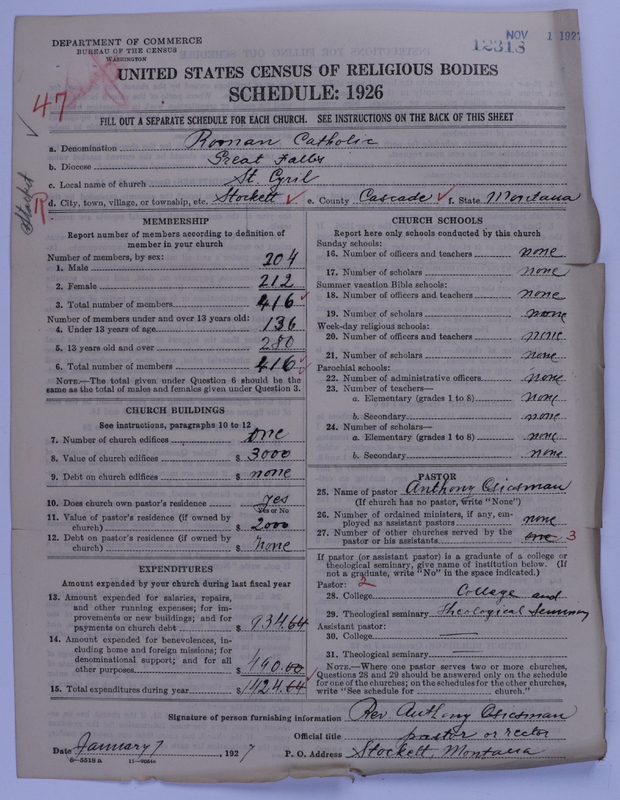 DEPARTMENT OF COMMERCE
BUREAU OF THE CENSUS
WASHINGTON
NOV 1 1927
12318
47
UNITED STATES CENSUS OF RELIGIOUS BODIES
SCHEDULE: 1926
FILL OUT A SEPARATE SCHEDULE FOR EACH CHURCH. SEE INSTRUCTIONS ON THE BACK OF THIS SHEET
a. Denomination Roman Catholic
b. Diocese Great Falls
c. Local name of church St. Cyril
d. City, town, village, or township, etc. Stockett e. County Cascade f. State Montana
Stockett
MEMBERSHIP
Report number of members according to definition of
member in your church
Number of members, by sex:
1. Male 204
2. Female 212
3. Total number of members 416
Number of members under and over 13 years old:
4. Under 13 years of age 136
5. 13 years old and over 280
6. Total number of members 416
NOTE.—The total given under Question 6 should be the
same as the total of males and females given under Question 3.
CHURCH BUILDINGS
See instructions, paragraphs 10 to 12
7. Number of church edifices one
8. Value of church edifices $ 3000
9. Debt on church edifices $ none
10. Does church own pastor's residence yes
Yes or No
11. Value of pastor's residence (if owned by
church) $ 2000
12. Debt on pastor's residence (if owned by
church) $ none
EXPENDITURES
Amount expended by your church during last fiscal year
13. Amount expended for salaries, repairs,
and other running expenses; for im-
provements on new buildings; and for
payments on church debt $ 934.64
14. Amount expended for benevolences, in-
cluding home and foreign missions; for
denominational support; and for all
other purposes $ 490.00
15. Total expenditures during year $ 1424.64
CHURCH SCHOOLS
Report here only schools conducted by this church
Sunday schools:
16. Number of officers and teachers none
17. Number of scholars none
Summer vacation Bible schools:
18. Number of officers and teachers none
19. Number of scholars none
Week-day religious schools:
20. Number of officers and teachers none
21. Number of scholars none
Parochial schools:
22. Number of administrative officers none
23. Number of teachers—
a. Elementary (grades 1 to 8) none
b. Secondary none
24. Number of scholars—
a. Elementary (grades 1 to 8) none
b. Secondary none
PASTOR
25. Name of pastor Anthony
(If church has no pastor, write "None")
26. Number of ordained ministers, if any, em-
ployed as assistant pastors none
27. Number of other churches served by the
pastor or his assistants one 3
If pastor (or assistant pastor) is a graduate of a college or
theological seminary, give name of institution below. (If
not a graduate, write "No" in the space indicated.)
Pastor: 2
28. College College and
29. Theological seminary Theological Seminary
Assistant pastor:
30. College
31. Theological seminary
NOTE.—Where one pastor serves two or more churches,
Questions 28 and 29 should be answered only on the schedule
for one of the churches; on the schedules for the other churches,
write "See schedule for church."
Signature of person furnishing information Rev. Anthony
Official title pastor or rector
Date January 7 1927 P. O. Address Stockett, Montana
8-5518 a